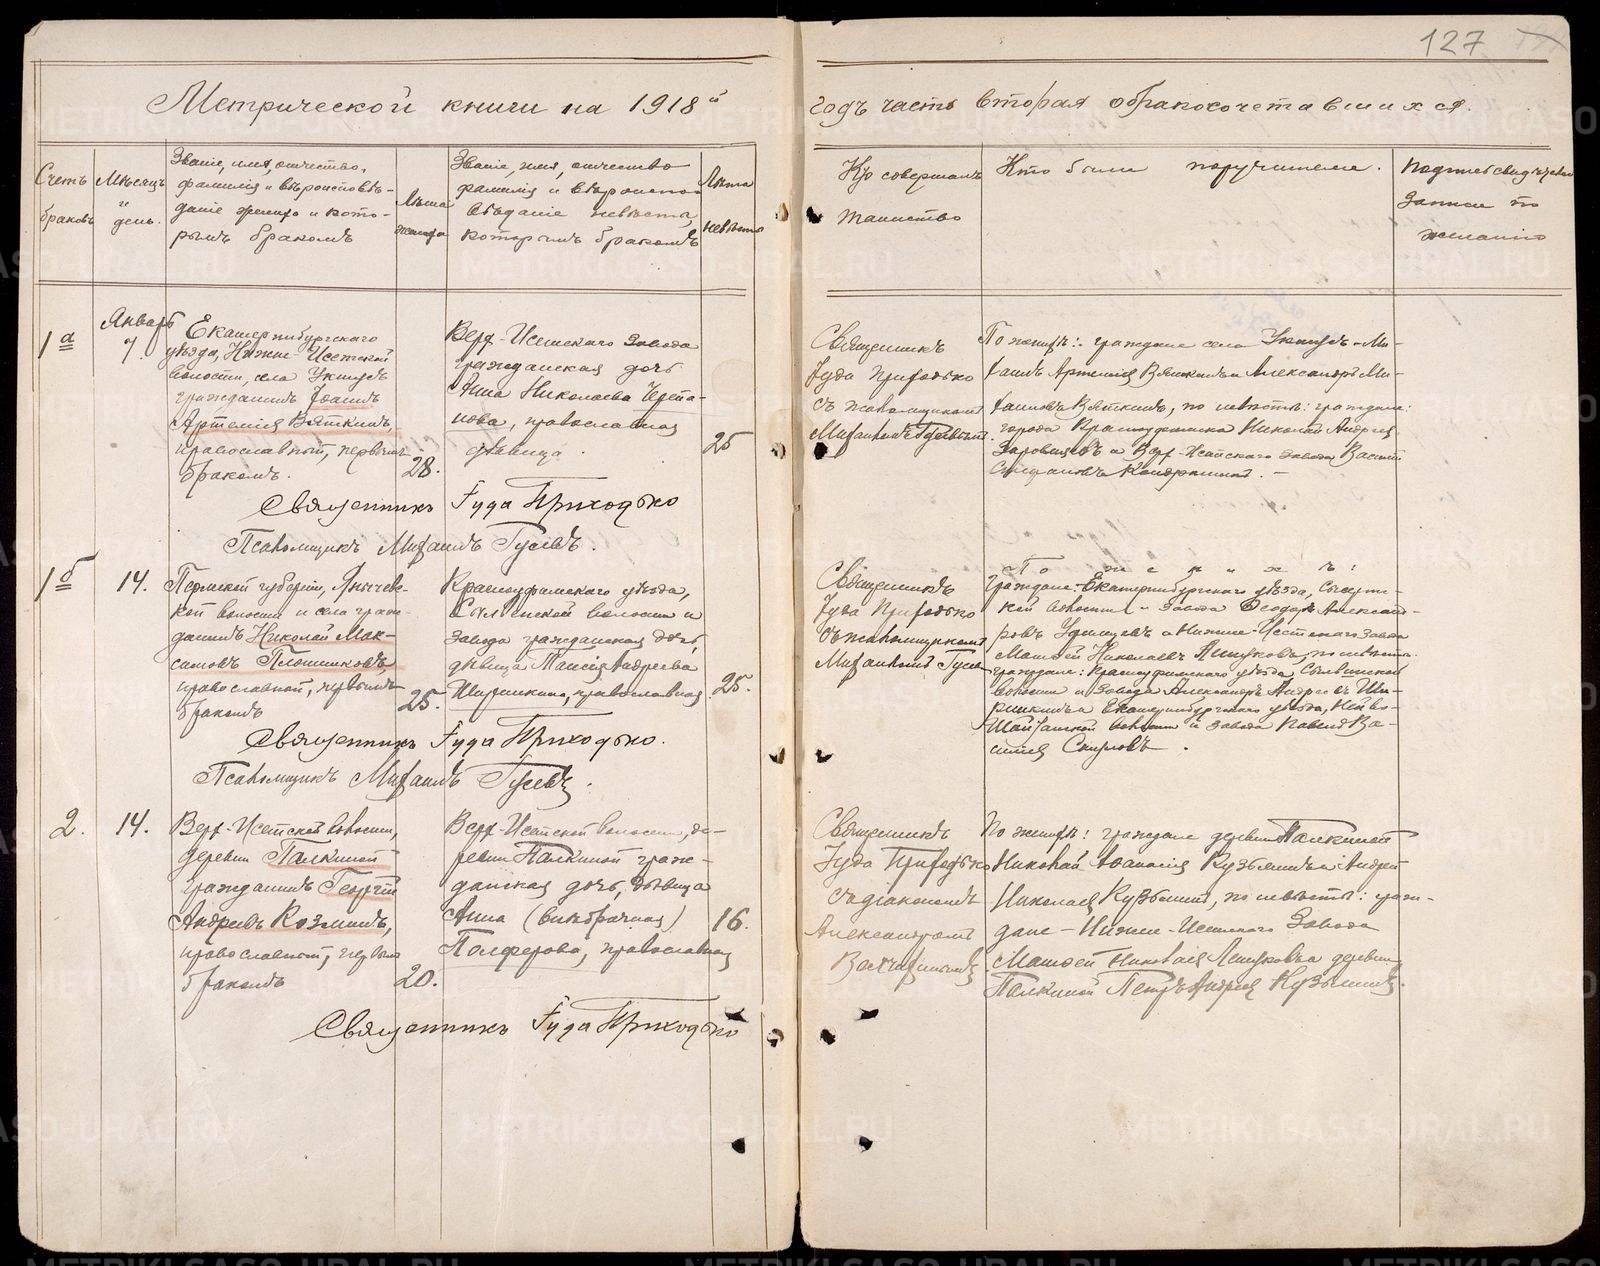 127
Метрической книги на 1918й
годъ часть вторая о бракосочетавшихся.
Счетъ браковъ
Мѣсяцъ и день.
Званіе, имя, отчество,
фамилія и вѣроисповѣ-
даніе жениха и кото-
рымъ бракомъ
Лѣта жениха
Званіе, имя, отчество
фамилія и вѣроиспо-
вѣданіе невѣсты,
которымъ бракомъ
Лѣта невѣсты
Кто совершалъ
таинство
Кто были поручители.
записи по
желанію
1а
Январь
7.
Екатеринбургскаго
уѣзда, Нижне-Исетской
волости, села Уктусъ
гражданинъ Іоаннъ
Артеміевъ Вяткинъ,
православный, первымъ
бракомъ.
28.
Верх-Исетскаго завода
гражданская дочь
Анна Николаева Черепа-
нова, православная
дѣвица.
25
Священникъ
Іуда Приходько
съ псаломщикомъ
Михаиломъ Гусевымъ.
По женихѣ: граждане села Уктусъ-Ми-
хаилъ Артеміев Вяткинъ и Александръ Ми-
хаиловъ Вяткинъ, по невѣстѣ: граждане:
города Красноуфимска Николай Андреев
и Верх-Исетскаго завода Василій
Священникъ Іуда Приходько
Псаломщикъ Михаилъ Гусевъ.
1б
14.
Пермской губерніи,
кой волости и села граж-
данинъ Николай Мак-
симовъ Плотниковъ,
православный, первымъ
бракомъ
25.
Красноуфимскаго уѣзда,
волости и
завода гражданская дочь,
дѣвица Таисія Андреева
Ширинкина, православная.
25.
Священникъ
Іуда Приходько
съ псаломщикомъ
Михаиломъ Гусев
По женихѣ:
граждане: Екатеринбургскаго уѣзда, Сысерт-
кой волости и завода Ѳеодоръ Александ-
ровъ и Нижне-Исетскаго завода
Матѳей Николаевъ по невѣстѣ
граждане: Красноуфимскаго уѣзда
волости и завода Александръ Андреевъ Ши-
ринкинъ и Екатеринбургскаго уѣзда, Невьо-
Шайтанской волости и завода Павелъ Ва-
силіев Смирновъ.
Священникъ Іуда Приходько.
Псаломщикъ Михаилъ Гусевъ.
2.
14.
Верх-Исетской волости,
деревни Палкиной
гражданинъ Георгій
Андреевъ Козминъ,
православный, первымъ
бракомъ
20.
Верх-Исетской волости, де-
ревни Палкиной граж-
данская дочь, дѣвица
Анна (внѣбрачная)
Палферова, православная
16.
Священникъ
Іуда Приходько
съ діакономъ
Александромъ
По женихѣ: граждане деревни Палкиной
Николай Аѳанасіев Кузьминъ и Андрей
Николаев Кузьминъ, по невѣстѣ: граж-
дане - Нижне-Исетскаго завода
Матѳей Николаев деревни
Палкиной Петръ Андреев Кузьминъ.
Священникъ Іуда Приходько
METRIKI.GASO-URAL.RU